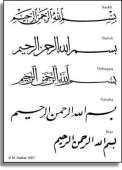 Naskh
بسم الله الرحمن الرحيم
بسم الله الرحمن الرحيم
بسم الله الرحمن الرحيم
بسم الله الرحمن الرحيم
بسم الله الرحمن الرحيم